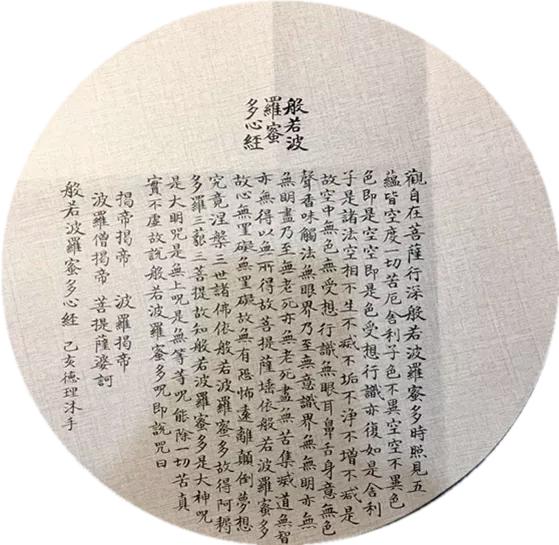 般若波
羅蜜
多心經
觀自在菩薩行深般若波羅蜜多時照見五
蘊皆空度一切苦厄舍利子色不異空空不異色
色即是空空即是色受想行識亦復如是舍利
子是諸法空相不生不滅不垢不淨不增不減是
故空中無色無受想行識無眼耳鼻舌身意無色
聲香味觸法無眼界乃至無意識界無無明亦無
無明盡乃至無老死亦無老死盡無苦集滅道無智
亦無得以無所得故菩提薩埵依般若波羅蜜多
故心無罣礙無罣礙故無有恐怖遠離顛倒夢想
究竟涅槃三世諸佛依般若波羅蜜多故得阿耨
多羅三藐三菩提故知般若波羅蜜多是大神咒
是大明咒是無上咒是無等等咒能除一切苦真
實不虛故說般若波羅蜜多咒即說咒曰
揭帝揭帝 波羅揭帝
波羅僧揭帝 菩提薩婆訶
般若波羅蜜多心經 己亥德理沐手